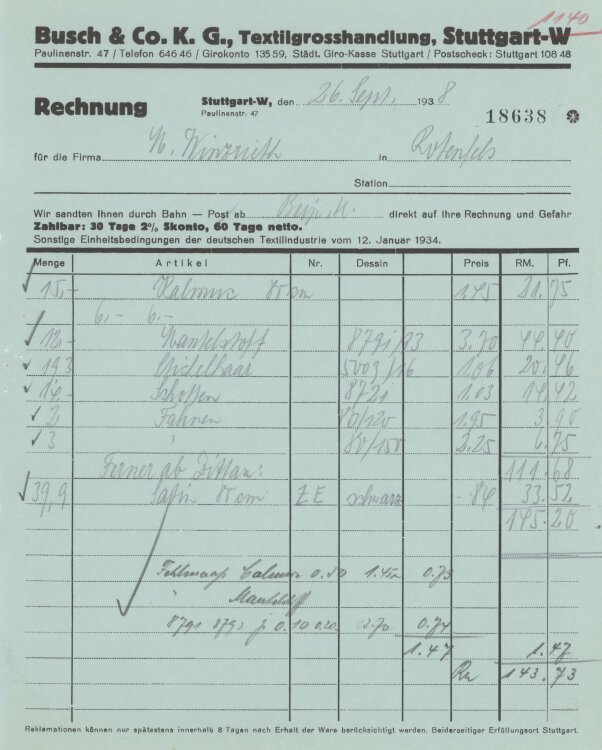 1140
Busch & Co. K. G., Textilgrosshandlung, Stuttgart-W
Paulinenstr. 47 / Telefon 646 46 / Girokonto 135 59, Städt. Giro-Kasse Stuttgart / Postscheck: Stuttgart 108 48
Rechnung Stuttgart-W, den 26. Sept. 1938
Paulinenstr. 47
18638
für die Firma N. in Rotenfels
Station
Wir sandten Ihnen durch Bahn — Post ab direkt auf Ihre Rechnung und Gefahr
Zahlbar: 30 Tage 2% Skonto, 60 Tage netto.
Sonstige Einheitsbedingungen der deutschen Textilindustrie vom 12. Januar 1934.
Menge Artikel Nr. Dessin Preis RM. Pf.
15,- 80 cm 1.45 21.75
6,- 6,-
12,- Mantelstoff 8791/93 3.70 44.40
19.3 5009/16 1.06 20.46
14,- Schotten 8721 1.03 14.42
2 Fahnen 80/120 1.95 3.90
3 " 80/150 2.25 6.75
Ferner ab Zittau: 111.68
39,9 Satin 80 cm ZE schwarz -.84 33.52
145.20
Calmuc 0.50 1.45 0.73
" Mantelstoff
8791 8793 je 0.10 0.20 3.70 0.74
1.47 1.47
143.73
Reklamationen können nur spätestens innerhalb 8 Tagen nach Erhalt der Ware berücksichtigt werden. Beiderseitiger Erfüllungsort Stuttgart.